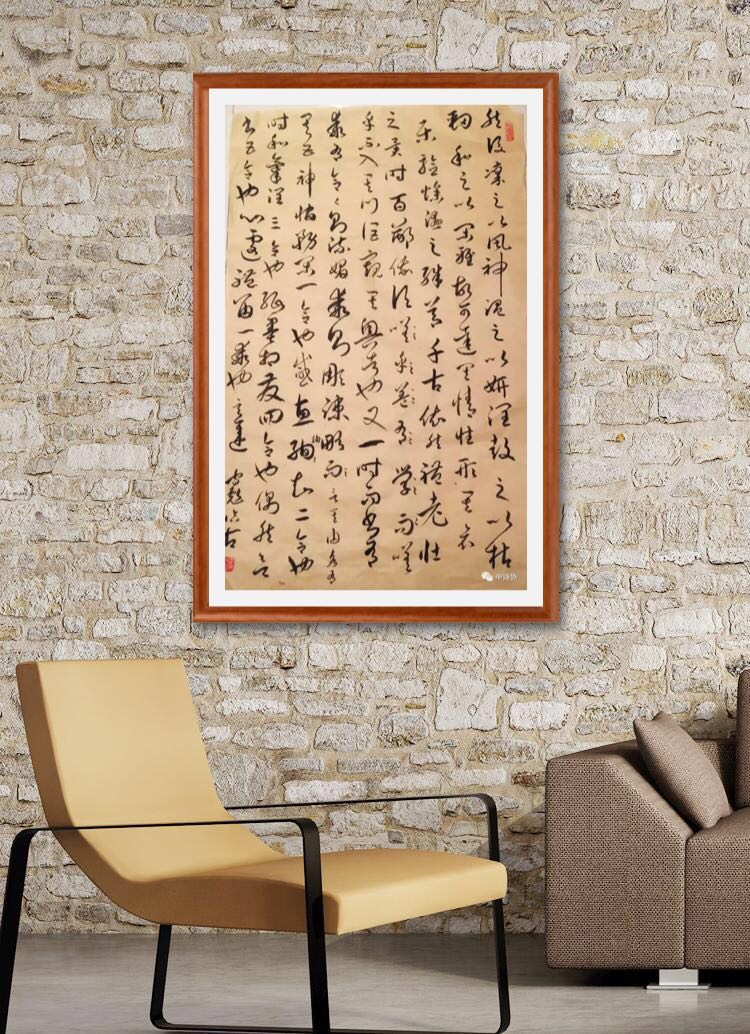 然後凜之以風神溫之以妍潤鼓之以枯
勁和之以閑雅故可達其情性形其哀
樂驗燥濕之殊節千古依然體老壯
之異時百齡俄頃嗟乎蓋有學而嗟
乎不入其門詎窺其奧者也又一時而書有
乖有合合則流媚乖則雕疎略而言其由各有
其五神怡務閑一合也感惠徇知二合也
時和氣潤三合也紙墨相發四合也偶然欲
書五合也心遽體留一乖也意違
中诗协